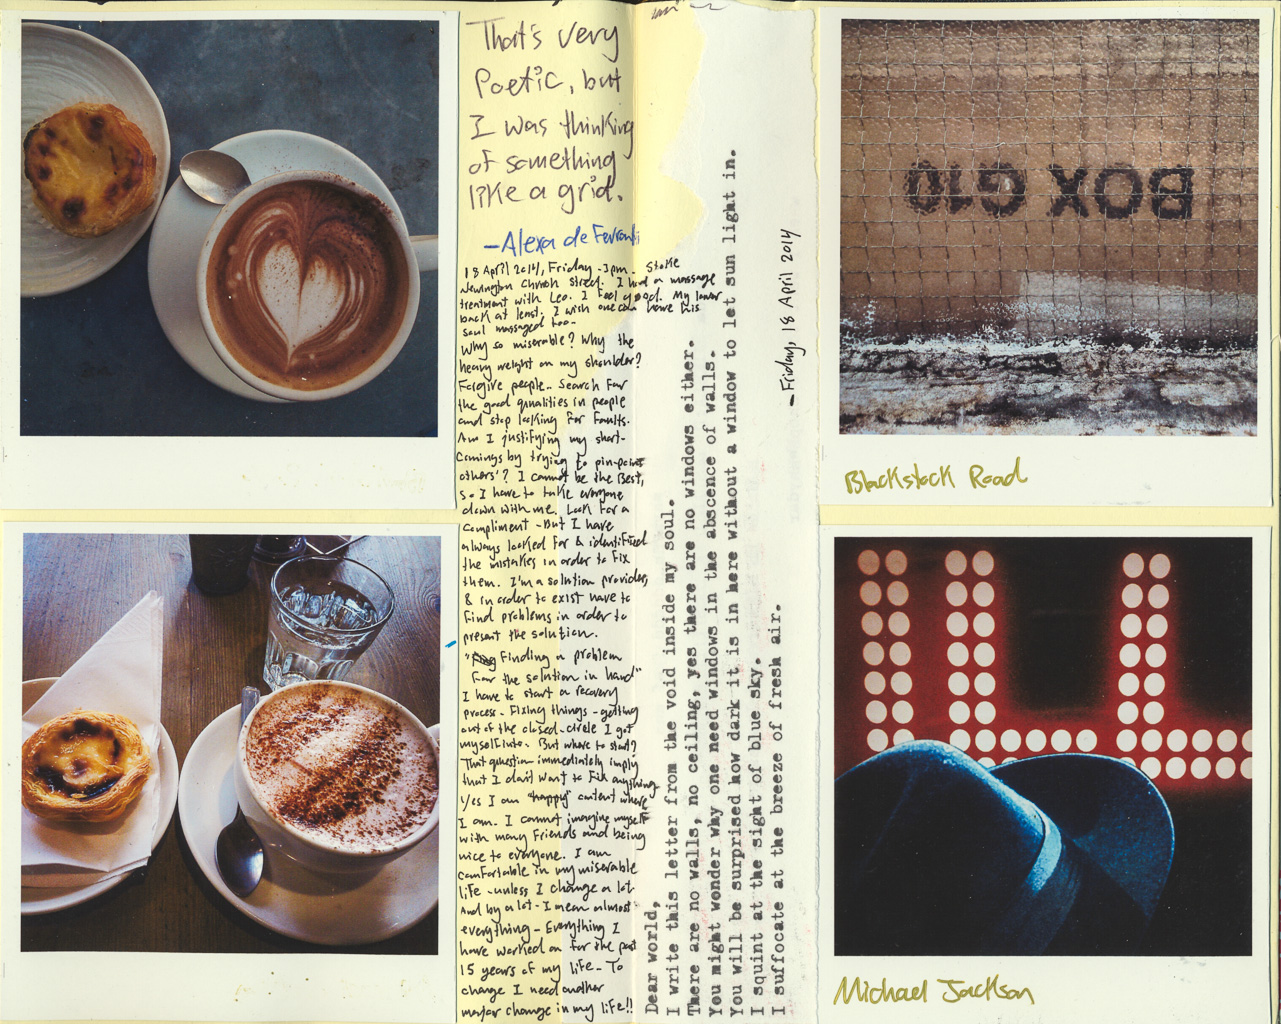 That's very
Poetic, but
I was thinking
of something
like a grid.
-Alexa de
18 April 2014, Friday - 3pm. Stoke
Newington Church Street. I had a massage
treatment with Leo. I feel good. My lower
back at least. I wish one can have his
soul massaged too.
Why so miserable? Why the
heavy weight on my shoulder?
Forgive people. Search for
the good qualities in people
and stop looking for faults.
Am I justifying my short-
comings by trying to pin-point
others'? I cannot be the best,
so I have to take everyone
down with me. Look for a
compliment - But I have
always looked for & identified
the mistakes in order to fix
them. I'm a solution provider,
& in order to exist have to
find problems in order to
present the solution.
"Finding a problem
for the solution in hand"
I have to start a recovery
process - Fixing things - getting
out of the closed-circle I got
myself into. But where to start?
That question immediately imply
that I don't want to fix anything
Yes I am "happy" content where
I am. I cannot imagine myself
with many friends and being
nice to everyone. I am
comfortable in my miserable
life - unless I change a lot
And by a lot - I mean almost
everything - Everything I
have worked on for the past
15 years of my life - To
change I need another
major change in my life!!
Dear world,
I write this letter from the void inside my soul.
There are no walls, no ceiling, yes there are no windows either.
You might wonder why one need windows in the abscence of walls.
You will be surprised how dark it is in here without a window to let sun light in.
I squint at the sight of blue sky.
I suffocate at the breeze of fresh air.
-Friday, 18 April 2014
BOX G10
Blackstock Road
Michael Jackson